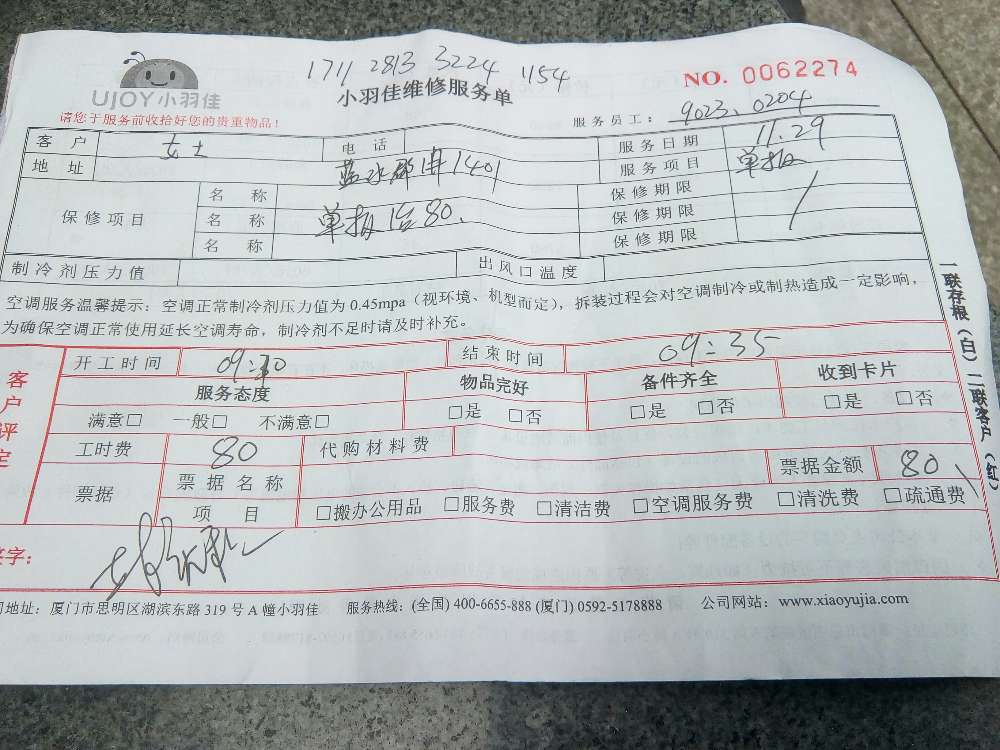 1711 2813 3224 1154
UJOY小羽佳
小羽佳维修服务单
NO. 0062274
请您于服务前收拾好您的贵重物品！
服务员工： 9023、0204
客户 女士 电话 服务日期 11.29
地址 蓝水郡 1401 服务项目 单拆
保修项目 名称 保修期限
名称 单拆 1台 80. 保修期限
名称 保修期限
制冷剂压力值 出风口温度
空调服务温馨提示：空调正常制冷剂压力值为0.45mpa（视环境、机型而定），拆装过程会对空调制冷或制热造成一定影响，
为确保空调正常使用延长空调寿命，制冷剂不足时请及时补充。
客户评定
开工时间 结束时间 09:35
服务态度 物品完好 备件齐全 收到卡片
满意□ 一般□ 不满意□ □是 □否 □是 □否 □是 □否
工时费 80 代购材料费
票据 票据名称 票据金额 80
项目 □搬办公用品 □服务费 □清洁费 □空调服务费 □清洗费 □疏通费
签字：
地址：厦门市思明区湖滨东路319号A幢小羽佳 服务热线：(全国) 400-6655-888 (厦门) 0592-5178888 公司网站：www.xiaoyujia.com
一联存根（白）二联客户（红）